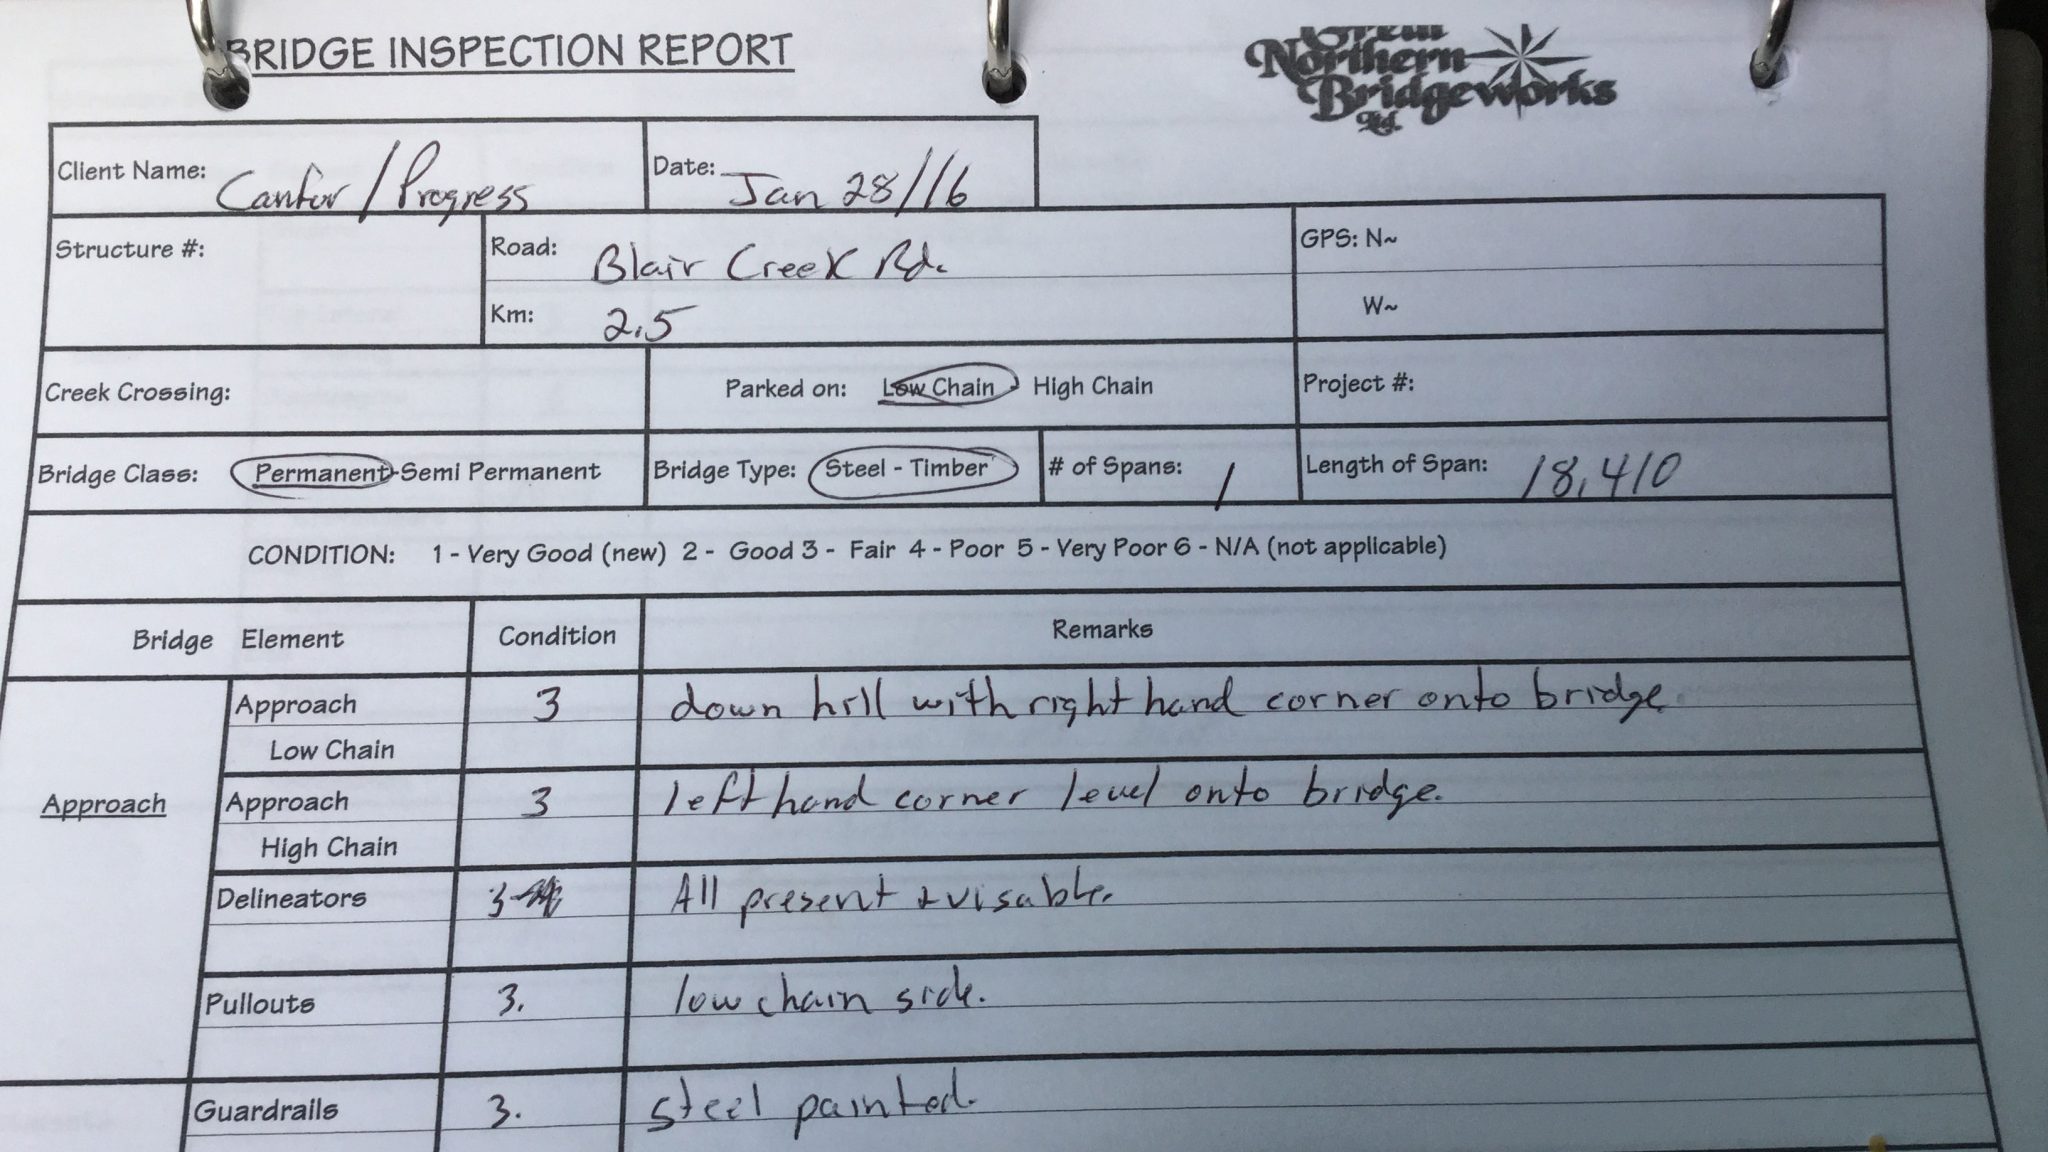 BRIDGE INSPECTION REPORT
Great
Northern
Bridgeworks
Ltd.
Client Name: Canfor / Progress
Date: Jan 28/16
Structure #:
Road: Blair Creek Rd.
Km: 2.5
GPS: N~
W~
Creek Crossing:
Parked on: Low Chain High Chain
Project #:
Bridge Class: Permanent-Semi Permanent
Bridge Type: Steel - Timber
# of Spans: 1
Length of Span: 18,410
CONDITION: 1 - Very Good (new) 2 - Good 3 - Fair 4 - Poor 5 - Very Poor 6 - N/A (not applicable)
Bridge Element Condition Remarks
Approach
Approach Low Chain 3 down hill with right hand corner onto bridge.
Approach High Chain 3 left hand corner level onto bridge.
Delineators 3 All present + visable.
Pullouts 3. low chain side.
Guardrails 3. steel painted.